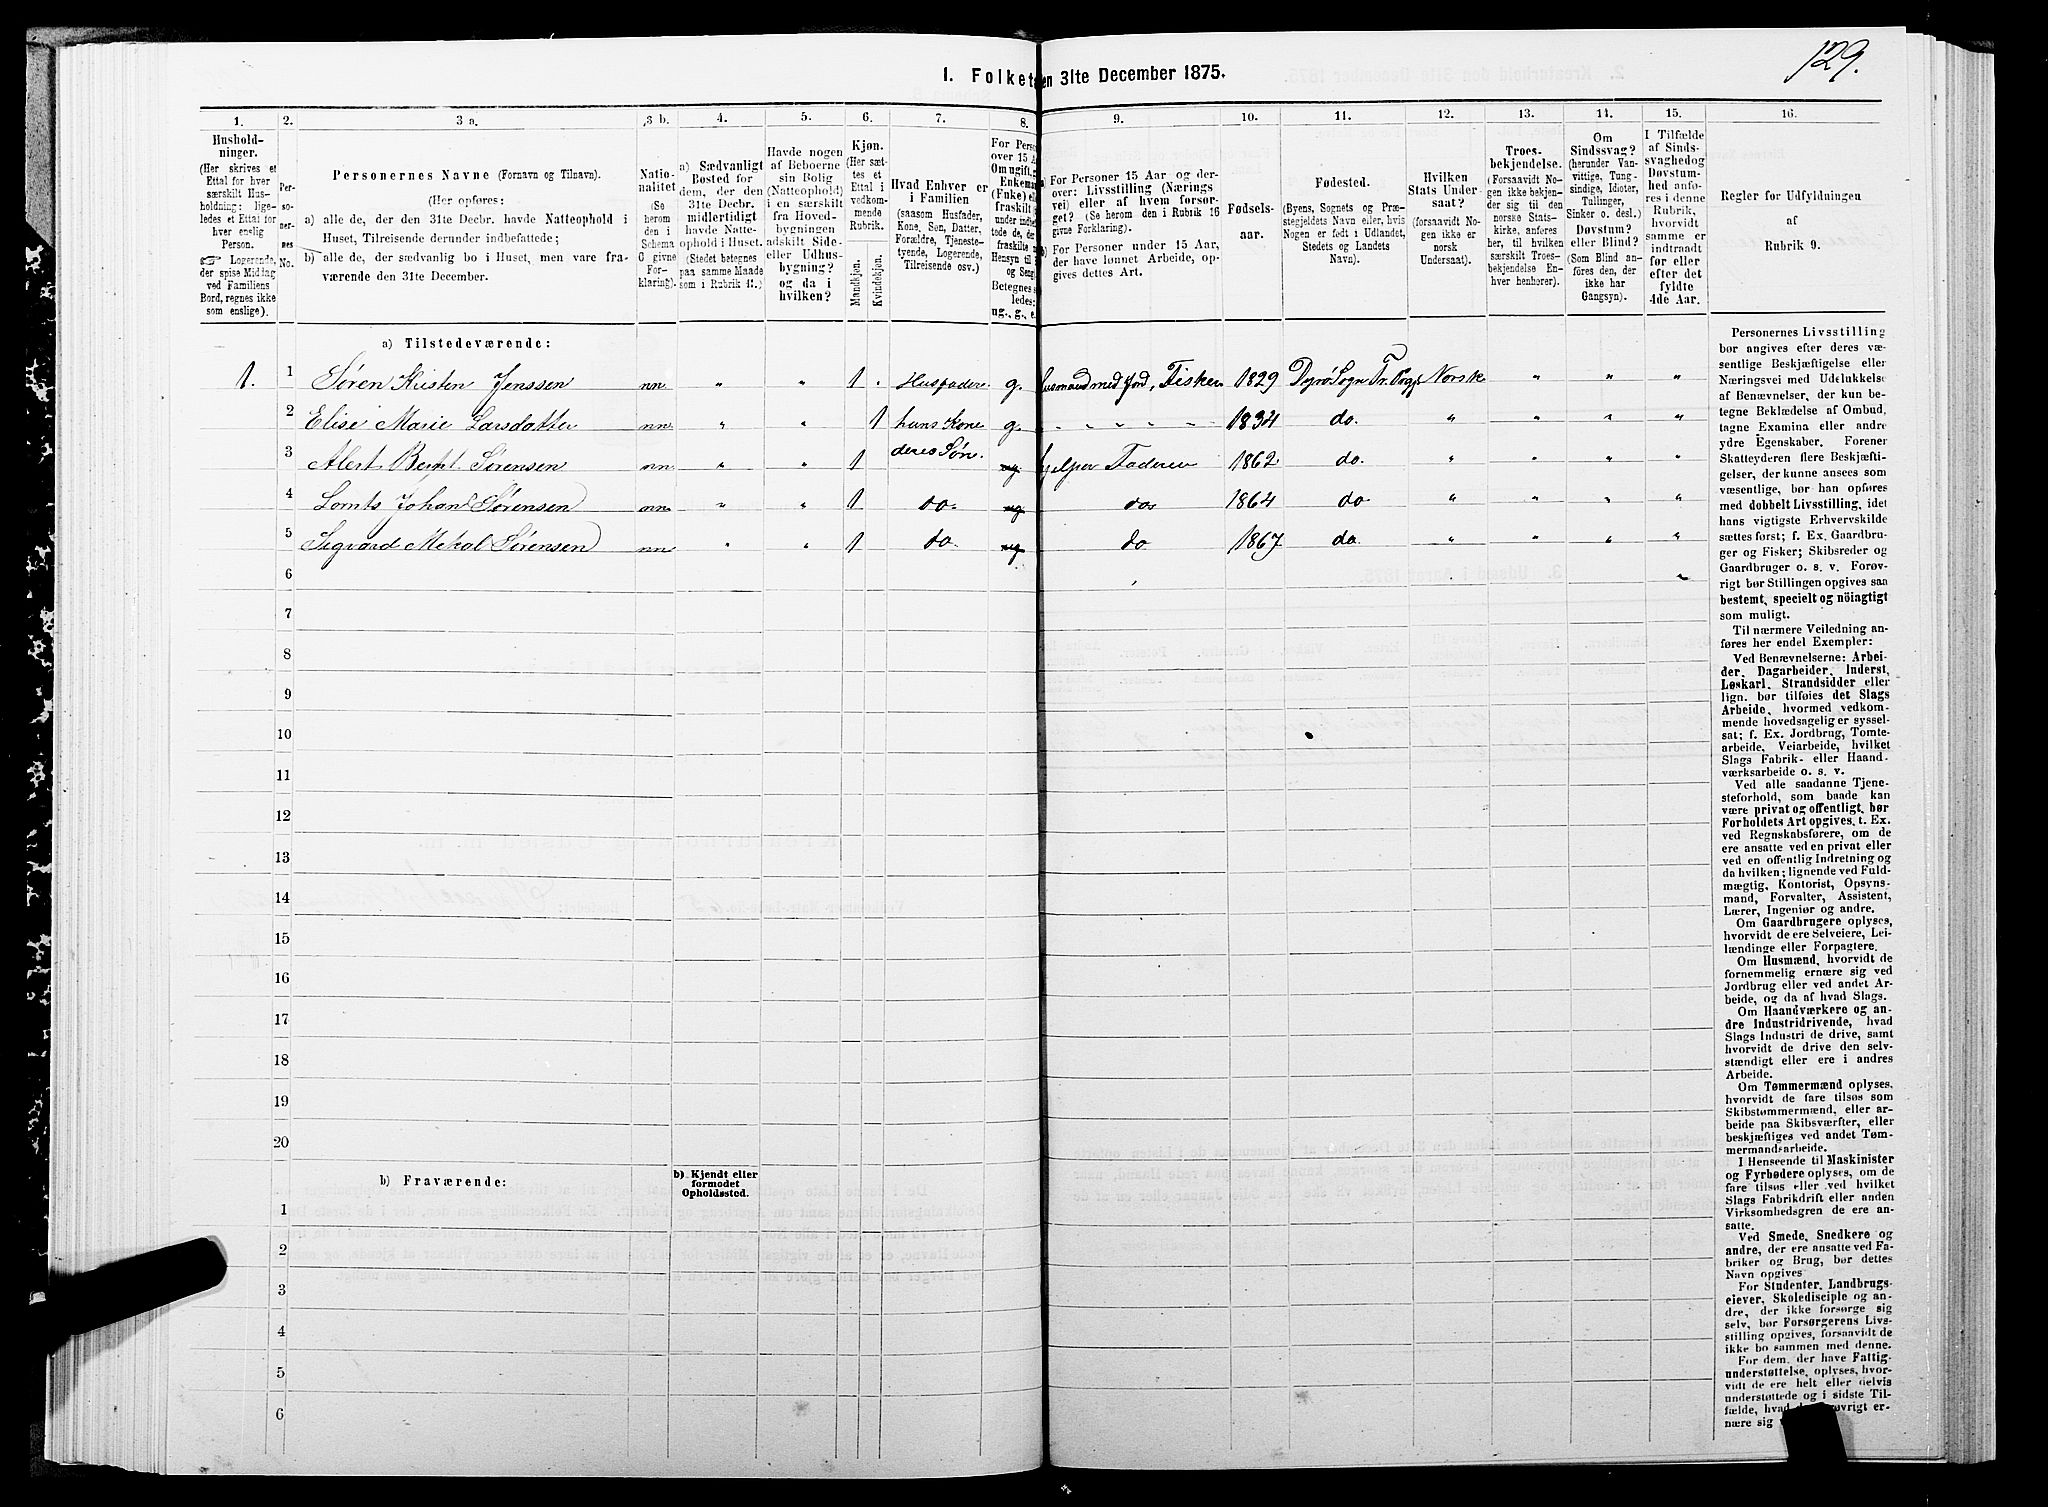 129.
1. Folket
en 31te December 1875.
1. 2. 3 a. 3 b. 4. 5. 6. 7. 8. 9. 10. 11. 12. 13. 14. 15. 16.
Hushold-
ninger.
(Her skrives et
Ettal for hver
særskilt Hus-
holdning; lige-
ledes et Ettal for
hver enslig
Person.
☞ Logerende,
der spise Middag
ved Familiens
Bord, regnes ikke
som enslige).
Per-
so-
ner-
nes
No.
Personernes Navne (Fornavn og Tilnavn).
(Her opføres:
a) alle de, der den 31te Decbr. havde Natteophold i
Huset, Tilreisende derunder indbefattede;
b) alle de, der sædvanlig bo i Huset, men vare fra-
værende den 31te December.
Natio-
nalitet
(Se
herom
den i
Schema
C givne
For-
klaring).
a) Sædvanligt
Bosted for
dem, der den
31te Decbr.
midlertidigt
havde Natte-
ophold i Huset.
(Stedet betegnes
paa samme Maade
som i Rubrik 11.)
Havde nogen
af Beboerne
sin Bolig
(Natteophold)
i en særskilt
fra Hoved-
bygningen
adskilt Side-
eller Udhus-
bygning?
og da i
hvilken?
Kjøn.
(Her sæt-
tes et
Ettal i
vedkom-
mende
Rubrik.
Mandkjøn.
Kvindekjøn.
Hvad Enhver er
i Familien
(saasom Husfader,
Kone, Søn, Datter,
Forældre, Tjeneste-
tyende, Logerende,
Tilreisende osv.)
For Perso
over 15 A
Om ugift, g
Enkema
(Enke) el
fraskilt
under indbe
tede de, de
fraskilte
Hensyn til
og Seng
Betegnes s
ledes:
ug., g., e.
a) For Personer 15 Aar og der-
over: Livsstilling (Nærings
vei) eller af hvem forsør-
get? (Se herom de i Rubrik 16
givne Forklaring).
b) For Personer under 15 Aar,
der have lønnet Arbeide, op-
gives dettes Art.
Fødsels-
aar.
Fødested.
(Byens, Sognets og Præ-
stegjeldets Navn eller, hvis
Nogen er født i Udlandet,
Stedets og Landets
Navn).
Hvilken
Stats Under-
saat?
(forsaavidt No-
gen ikke er
norsk
Undersaat).
Troes-
bekjendelse.
(Forsaavidt No-
gen ikke bekjen-
der sig til den
norske Stats-
kirke, anføres
her, til hvilken
særskilt Troes-
bekjendelse En-
hver henhører).
Om
Sindssvag?
(herunder Van-
vittige, Tung-
sindige, Idioter,
Tullinger,
Sinker o. desl.)
Døvstum?
eller Blind?
(som Blind an-
føres den, der
ikke har
Gangsyn).
I Tilfælde
af Sinds-
svaghed og
Døvstum-
hed anfø-
res i denne
Rubrik,
hvorvidt
samme er
indtraadt
før eller
efter det
fyldte
4de Aar.
Regler for Udfyldningen
af
Rubrik 9.
a) Tilstedeværende:
1. 1 Søren Kristen Jenssen nn. „ „ 1 . Husfader. g. Husmand med Jord, Fisker 1829 Dyrø Sogn Tr. Præg. Norsk „ „ „
2 Elise Marie Larsdatter nn. „ „ 1 hans Kone g. „ „ „ „ „ 1834 do. „ „ „ „
3 Alert Sørensen nn. „ „ 1 deres Søn. ug hjelper Faderen 1862 do. „ „ „ „
4 Johan Sørensen nn. „ „ 1 do. ug do 1864 do „ „ „ „
5 Sigvard Mekal Sørensen nn. „ „ 1 do. ug do 1867 do „ „ „ „
6
7
8
9
10
11
12
13
14
15
16
17
18
19
20
b) Fraværende:
b) Kjendt eller
formodet
Opholdssted.
1
2
3
4
5
6
Personernes Livsstilling
bør angives efter deres væ-
sentlige Beskjæftigelse eller
Næringsvei med Udelukkelse
af Benævnelser, der kun be-
tegne Beklædelse af Ombud,
tagne Examina eller andre
ydre Egenskaber. Forener
Skatteyderen flere Beskjæfti-
gelser, der kunne ansees som
væsentlige, bør han opføres
med dobbelt Livsstilling, idet
hans vigtigste Erhvervskilde
sættes først; f. Ex. Gaardbru-
ger og Fisker; Skibsreder og
Gaardbruger o. s. v. Forøv-
rigt bør Stillingen opgives saa
bestemt, specielt og nøiagtigt
som muligt.
Til nærmere Veiledning an-
føres her endel Exempler:
Ved Benævnelserne: Arbei-
der, Dagarbeider, Inderst,
Løskarl, Strandsidder eller
lign. bør tilføies det Slags
Arbeide, hvormed vedkom-
mende hovedsagelig er syssel-
sat; f. Ex. Jordbrug, Tomte-
arbeide, Veiarbeide, hvilket
Slags Fabrik- eller Haand-
værksarbeide o. s. v.
Ved alle saadanne Tjene-
steforhold, som baade kan
være privat og offentligt, bør
Forholdets Art opgives, t. Ex.
ved Regnskabsførere, om de
ere ansatte ved en privat eller
ved en offentlig Indretning og
da hvilken; lignende ved Fuld-
mægtig, Kontorist, Opsyns-
mand, Forvalter, Assistent,
Lærer, Ingeniør og andre.
Om Gaardbrugere oplyses,
hvorvidt de ere Selveiere, Lei-
lændinge eller Forpagtere.
Om Husmænd, hvorvidt de
fornemmelig ernære sig ved
Jordbrug eller ved andet Ar-
beide, og da af hvad Slags.
Om Haandværkere og an-
dre Industridrivende, hvad
Slags Industri de drive, samt
hvorvidt de drive den selv-
stændigt eller ere i andres
Arbeide.
Om Tømmermænd oplyses,
hvorvidt de fare tilsøs som
Skibstømmermænd, eller ar-
beide paa Skibsværfter, eller
beskjæftiges ved andet Tøm-
mermandsarbeide.
I Henseende til Maskinister
og Fyrbødere oplyses, om de
fare tilsøs eller ved hvilket
Slags Fabrikdrift eller anden
Virksomhedsgren de ere an-
satte.
Ved Smede, Snedkere og
andre, der ere ansatte ved Fa-
briker og Brug, bør dettes
Navn opgives
For Studenter, Landbrugs-
eiever, Skoledisciple og an-
dre, der ikke forsørge sig
selv, bør Forsørgerens Livs-
stilling opgives, forsaavidt de
ikke bo sammen med denne.
For dem, der have Fattig-
understøttelse, oplyses, hvor-
vidt de ere helt eller delvis
understøttede og i sidste Til-
fælde, hvad de forøvrigt er-
nære sig